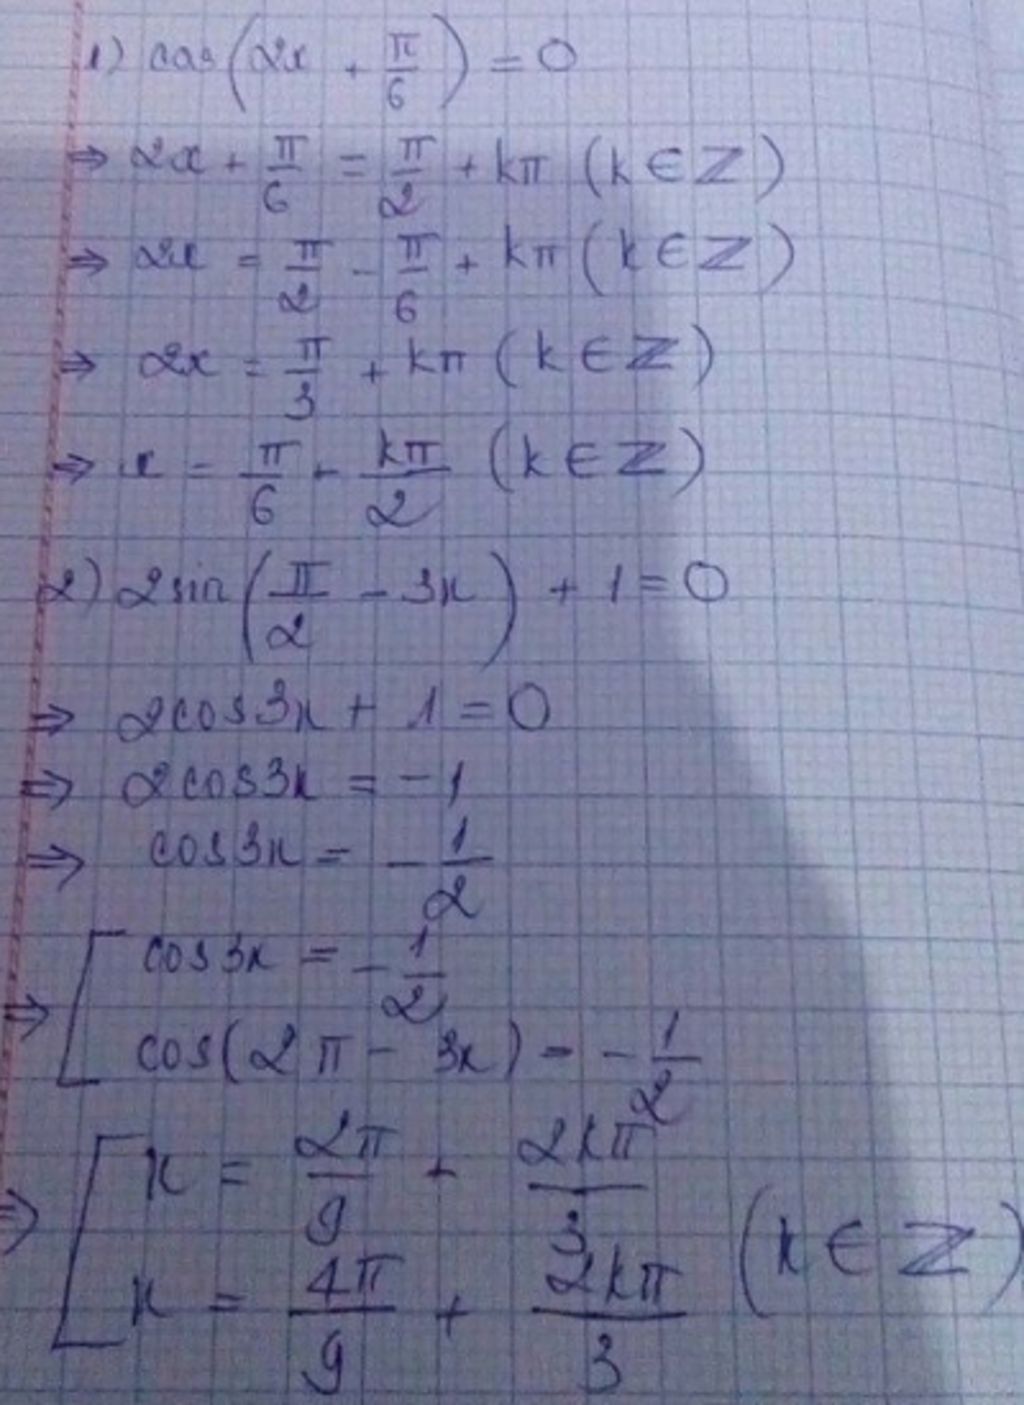 1) cos(2x + π/6) = 0
⇒ 2x + π/6 = π/2 + kπ (k ∈ Z)
⇒ 2x = π/2 - π/6 + kπ (k ∈ Z)
⇒ 2x = π/3 + kπ (k ∈ Z)
⇒ x = π/6 - kπ/2 (k ∈ Z)
2) 2sin(π/2 - 3x) + 1 = 0
⇒ 2cos3x + 1 = 0
⇒ 2cos3x = -1
⇒ cos3x = -1/2
⇒ [ cos3x = -1/2
cos(2π - 3x) = -1/2
⇒ [ x = 2π/9 + 2kπ/3
x = 4π/9 + 2kπ/3 (k ∈ Z)